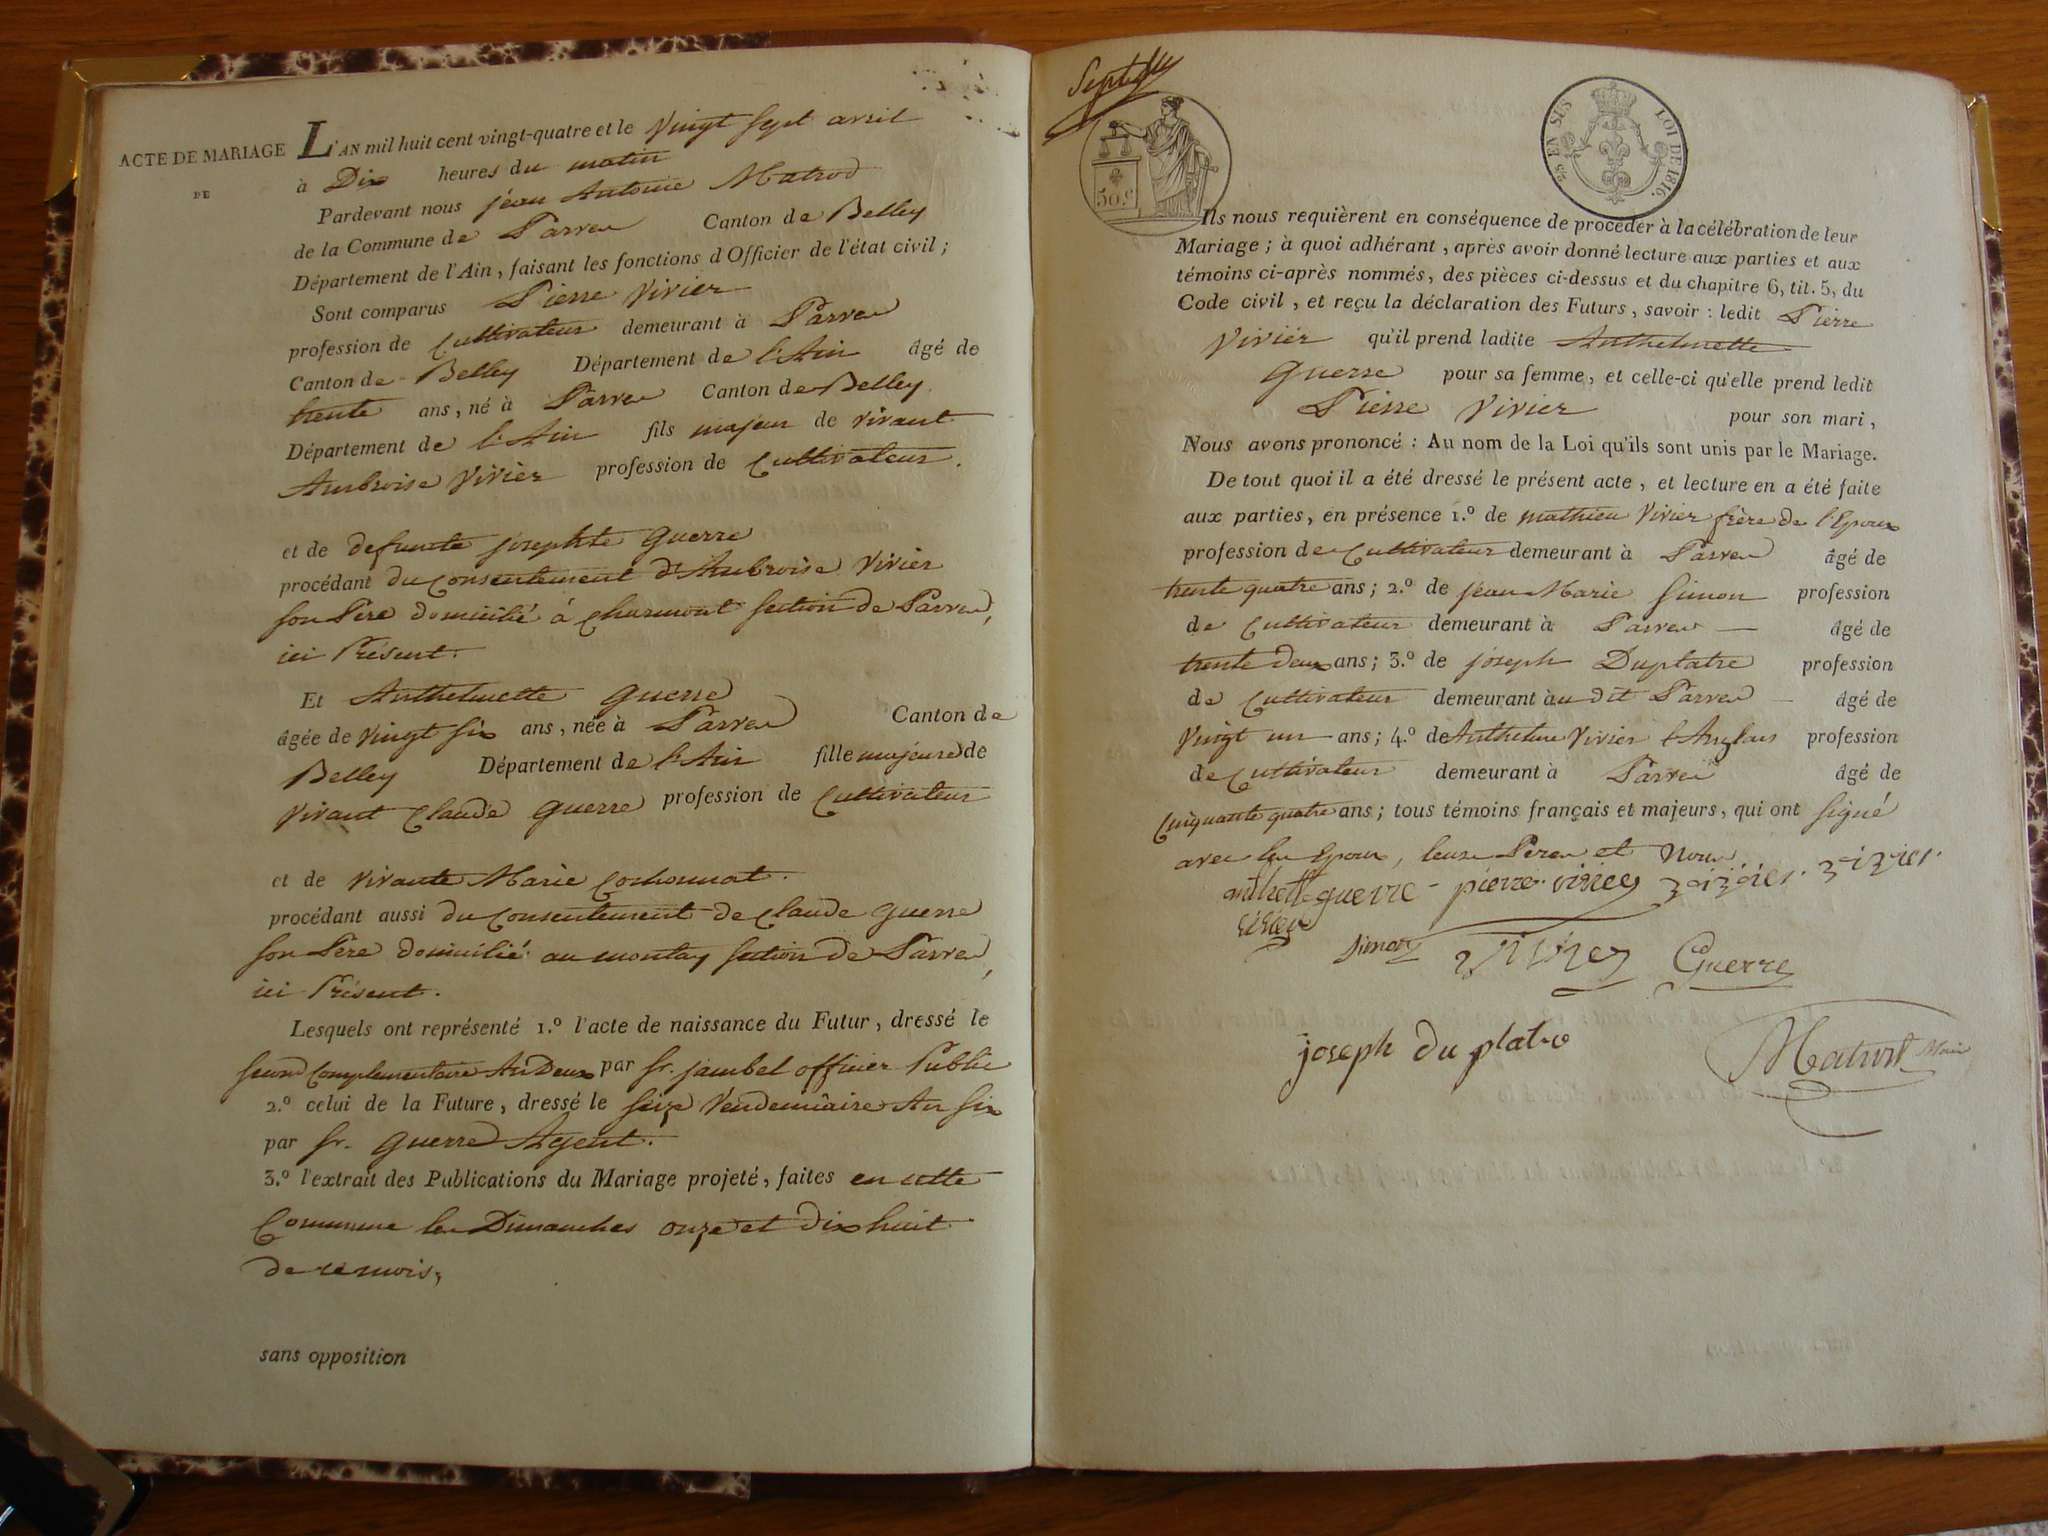 ACTE DE MARIAGE
DE
L'AN mil huit cent vingt-quatre et le Vingt Sept avril
à Dix heures du matin
Pardevant nous jean Antoine Matrod
de la Commune de Parves Canton de Belley
Département de l'Ain, faisant les fonctions d'Officier de l'état civil;
Sont comparus Pierre Vivier
profession de Cultivateur demeurant à Parves
Canton de Belley Département de l'Ain âgé de
trente ans, né à Parves Canton de Belley
Département de l'Ain fils majeur de vivant
Ambroise Vivier profession de Cultivateur.
et de defunte josephte Guerre
procédant du Consentement d'Ambroise Vivier
son Père domicilié à Charmont section de Parves,
ici Présent.
Et Anthelmette Guerre
âgée de Vingt six ans, née à Parves Canton de
Belley Département de l'Ain fille majeure de
Vivant Claude Guerre profession de Cultivateur
et de vivante Marie Cochonnat.
procédant aussi du Consentement de Claude Guerre
son Père domicilié au montay section de Parves,
ici Présent.
Lesquels ont représenté 1.º l'acte de naissance du Futur, dressé le
second Complementaire An Deux par Sr. jambel officier Public
2.º celui de la Future, dressé le seize Vendemiaire An six
par Sr. Guerre Agent.
3.º l'extrait des Publications du Mariage projeté, faites en cette
Commune les Dimanches onze et dix huit
de ce mois,
sans opposition
Sept
50 c
25 EN SUS LOI DE 1816.
Ils nous requièrent en conséquence de procéder à la célébration de leur
Mariage; à quoi adhérant, après avoir donné lecture aux parties et aux
témoins ci-après nommés, des pièces ci-dessus et du chapitre 6, tit. 5, du
Code civil, et reçu la déclaration des Futurs, savoir: ledit Pierre
Vivier qu'il prend ladite Anthelmette
Guerre pour sa femme, et celle-ci qu'elle prend ledit
Pierre Vivier pour son mari,
Nous avons prononcé: Au nom de la Loi qu'ils sont unis par le Mariage.
De tout quoi il a été dressé le présent acte, et lecture en a été faite
aux parties, en présence 1.º de mathieu Vivier frère de l'Epoux
profession de Cultivateur demeurant à Parves âgé de
trente quatre ans; 2.º de jean Marie Simon profession
de Cultivateur demeurant à Parves âgé de
trente deux ans; 3.º de joseph Duplatre profession
de Cultivateur demeurant au dit Parves âgé de
Vingt un ans; 4.º de Anthelme Vivier l'Anglais profession
de Cultivateur demeurant à Parves âgé de
Cinquante quatre ans; tous témoins français et majeurs, qui ont signé
avec les Epoux, leurs Peres et Nous
guerre pierre vivier vivier vivier
Simon vivier Guerre
joseph du platre
Matrod Maire